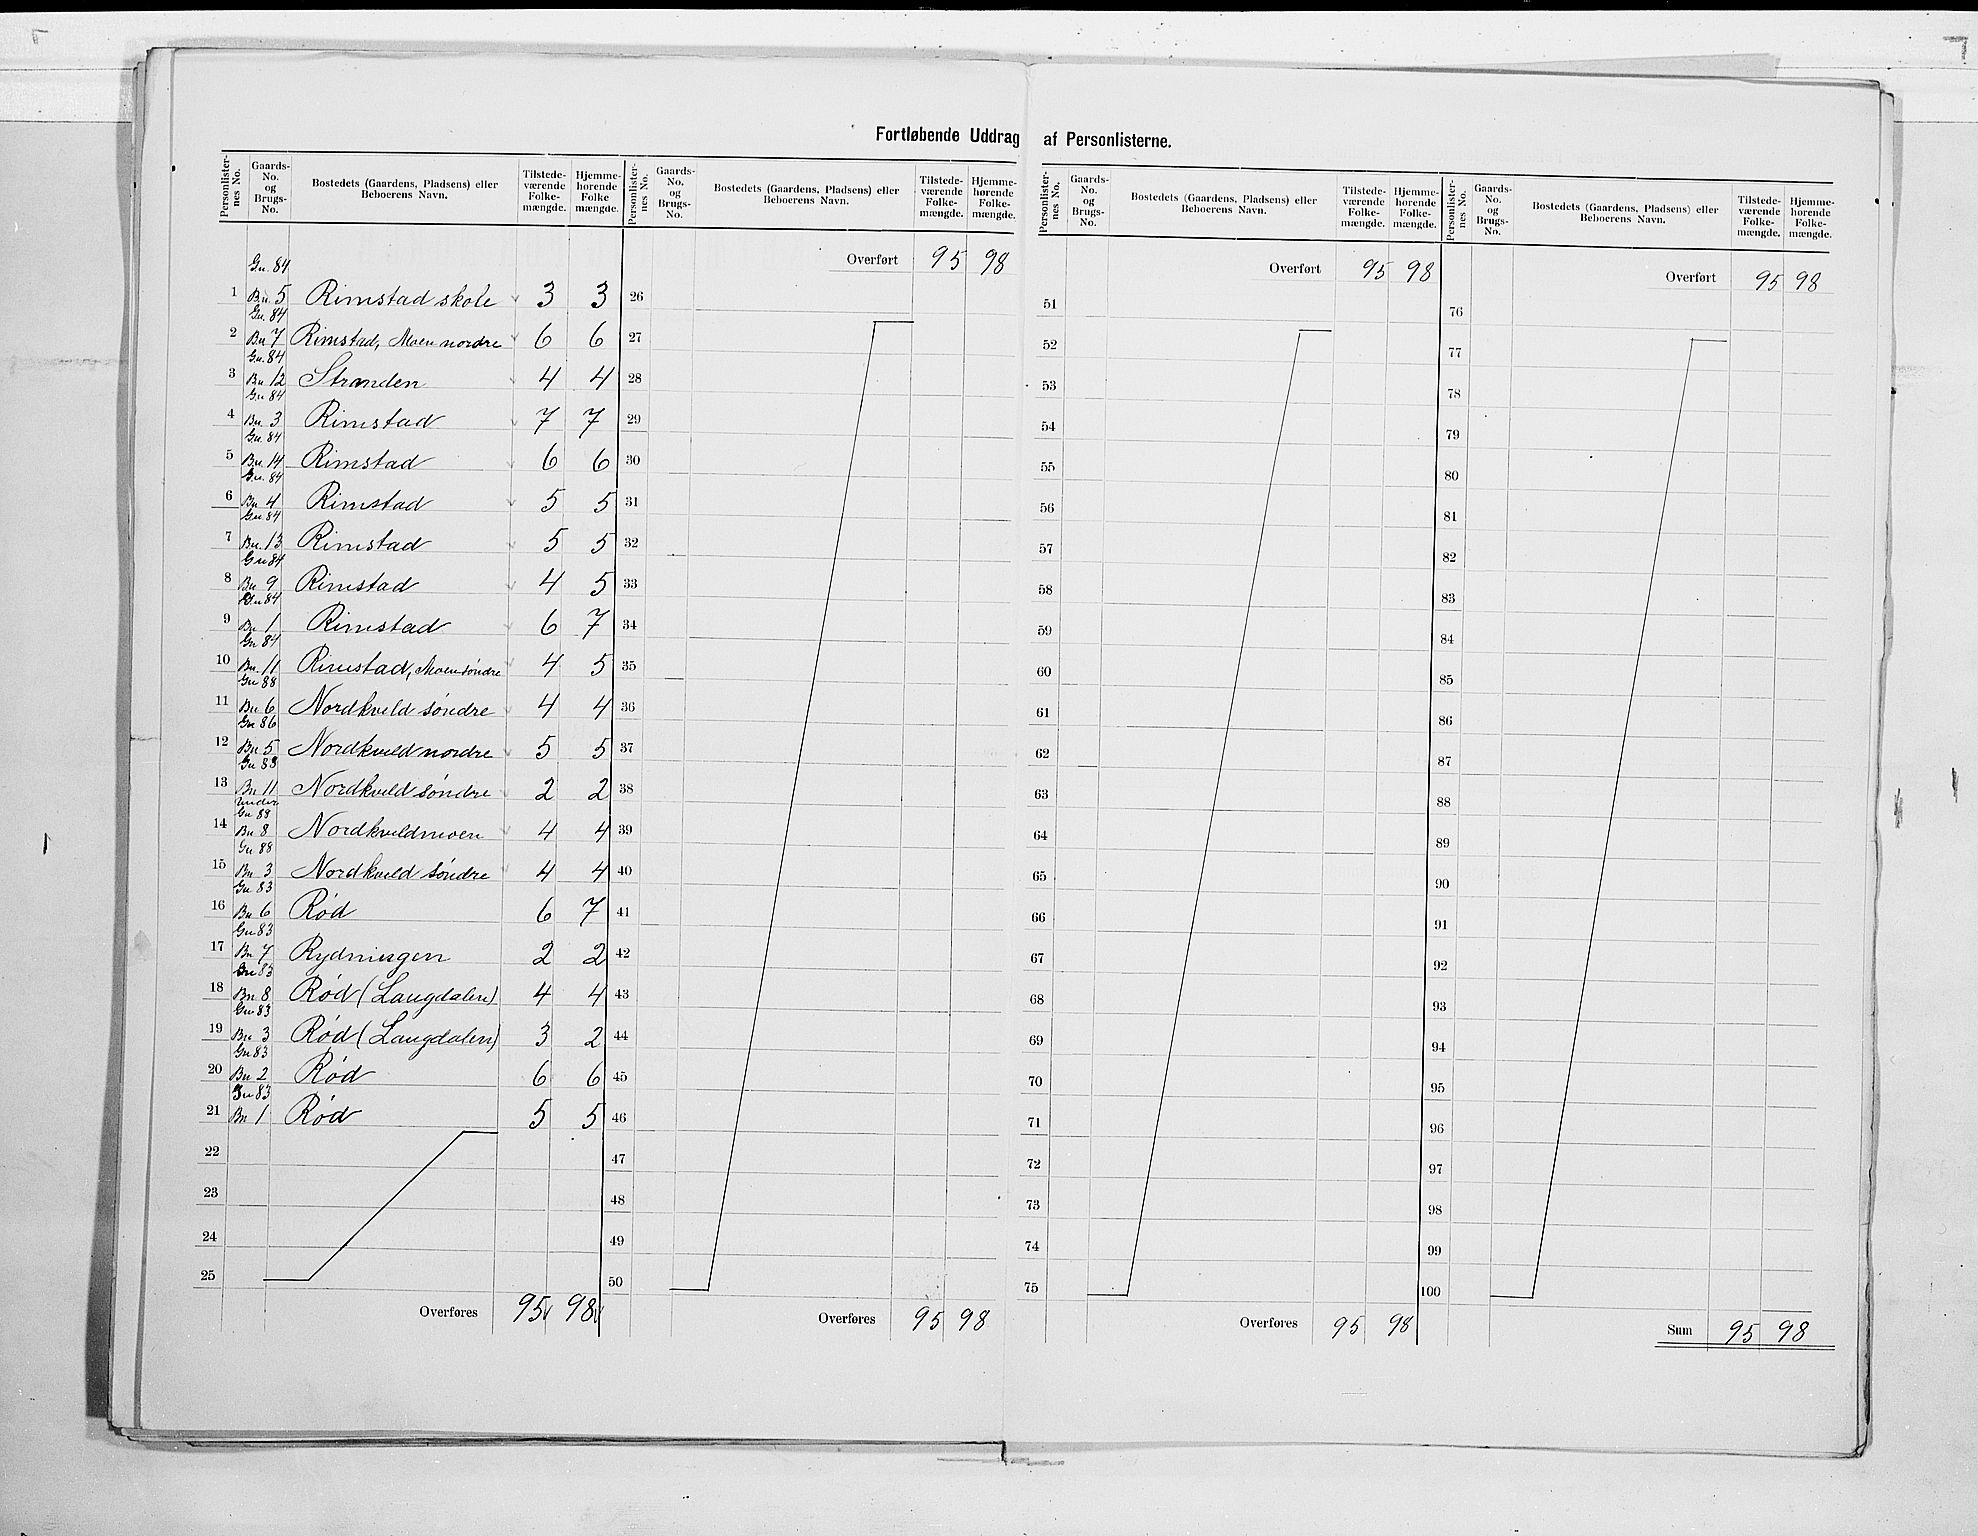 Fortløbende Uddrag af Personlisterne.
Personlister-nes No. | Gaards-No. og Brugs-No. | Bostedets (Gaardens, Pladsens) eller Beboerens Navn. | Tilstede-værende Folke-mængde. | Hjemme-hørende Folke mængde.
Gn. 84
1 Bn. 5 Rimstad skole 3 3
Gn. 84
2 Bn 7 Rimstad, Moen nordre 6 6
Gn. 84
3 Bn. 12 Stranden 4 4
Gn 84
4 Bn. 3 Rimstad 7 7
Gn. 84
5 Bn. 14 Rimstad 6 6
Gn. 84
6 Bn 4 Rimstad 5 5
Gn. 84
7 Bn. 13 Rimstad 5 5
Gn 84
8 Bn 9 Rimstad 4 5
Gn 84
9 Bn. 1 Rimstad 6 7
Gn 84
10 Bn. 11 Rimstad, Moen søndre 4 5
Gn 88
11 Bn 6 Nordkveld søndre 4 4
Gn 86
12 Bn 5 Nordkveld nordre 5 5
Gn 88
13 Bn 11 Nordkveld søndre 2 2
under
Gn 88
14 Bn 8 Nordkveldmoen 4 4
Gn 88
15 Bn 3 Nordkveld søndre 4 4
Gn 83
16 Bn 6 Rød 6 7
Gn 83
17 Bn 7 Rydningen 2 2
Gn 83
18 Bn 8 Rød (Laugdalen) 4 4
Gn 83
19 Bn 3 Rød (Laugdalen) 3 2
Gn 83
20 Bn 2 Rød 6 6
Gn 83
21 Bn 1 Rød 5 5
22
23
24
25
Overføres 95 98
Personlister-nes No. | Gaards-No. og Brugs-No. | Bostedets (Gaardens, Pladsens) eller Beboerens Navn. | Tilstede-værende Folke-mængde. | Hjemme-hørende Folke-mængde.
Overført 95 98
26
27
28
29
30
31
32
33
34
35
36
37
38
39
40
41
42
43
44
45
46
47
48
49
50
Overføres 95 98
Personlister-nes No. | Gaards-No. og Brugs-No. | Bostedets (Gaardens, Pladsens) eller Beboerens Navn. | Tilstede-værende Folke-mængde. | Hjemme-hørende Folke-mængde.
Overført 95 98
51
52
53
54
55
56
57
58
59
60
61
62
63
64
65
66
67
68
69
70
71
72
73
74
75
Overføres 95 98
Personlister-nes No. | Gaards-No. og Brugs-No. | Bostedets (Gaardens, Pladsens) eller Beboerens Navn. | Tilstede-værende Folke-mængde. | Hjemme-hørende Folke-mængde.
Overført 95 98
76
77
78
79
80
81
82
83
84
85
86
87
88
89
90
91
92
93
94
95
96
97
98
99
100
Sum 95 98